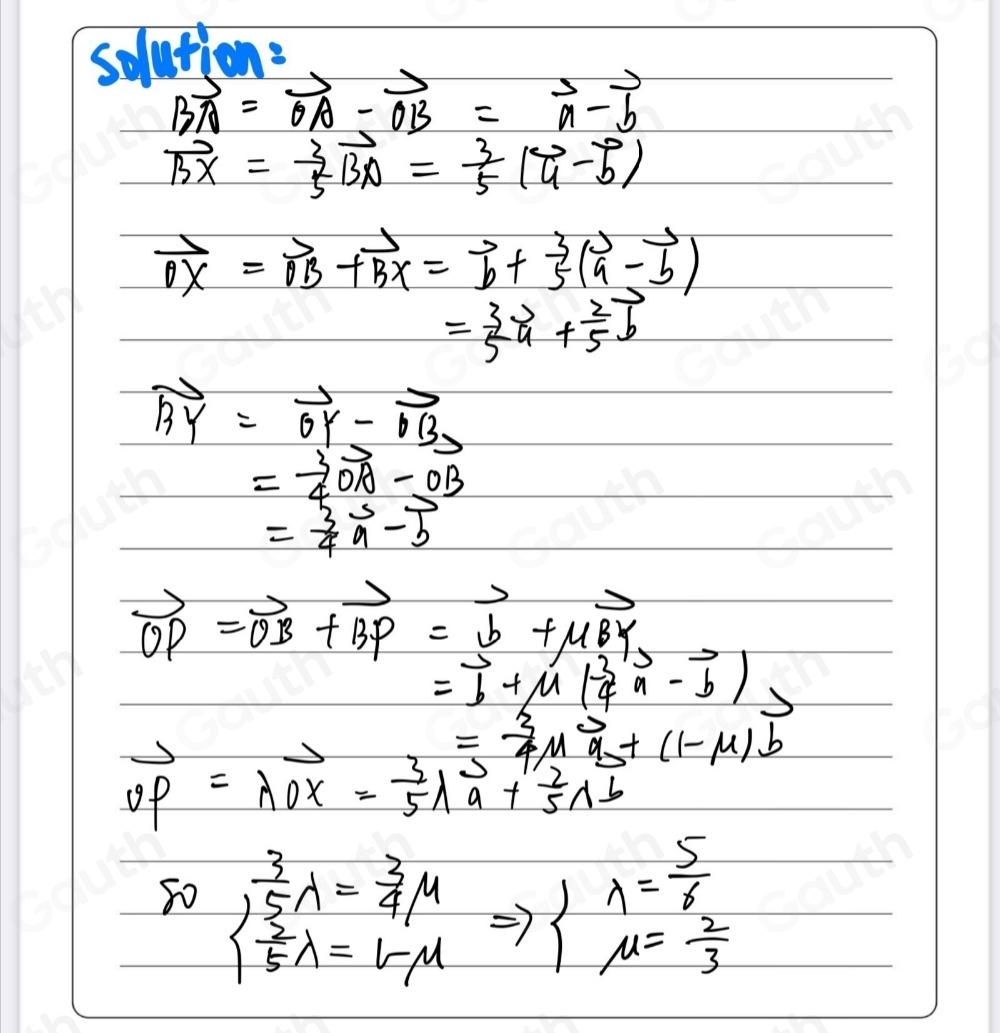 Solution:
$\overrightarrow{BA} = \overrightarrow{OA} - \overrightarrow{OB} = \vec{a} - \vec{b}$
$\overrightarrow{BX} = \frac{3}{5}\overrightarrow{BA} = \frac{3}{5}(\vec{a} - \vec{b})$
$\overrightarrow{OX} = \overrightarrow{OB} + \overrightarrow{BX} = \vec{b} + \frac{3}{5}(\vec{a} - \vec{b})$
$= \frac{3}{5}\vec{a} + \frac{2}{5}\vec{b}$
$\overrightarrow{BY} = \overrightarrow{OY} - \overrightarrow{OB}$
$= \frac{3}{4}\overrightarrow{OA} - \overrightarrow{OB}$
$= \frac{3}{4}\vec{a} - \vec{b}$
$\overrightarrow{OP} = \overrightarrow{OB} + \overrightarrow{BP} = \vec{b} + \mu\overrightarrow{BY}$
$= \vec{b} + \mu(\frac{3}{4}\vec{a} - \vec{b})$
$= \frac{3}{4}\mu\vec{a} + (1-\mu)\vec{b}$
$\overrightarrow{OP} = \lambda\overrightarrow{OX} = \frac{3}{5}\lambda\vec{a} + \frac{2}{5}\lambda\vec{b}$
so $\begin{cases} \frac{3}{5}\lambda = \frac{3}{4}\mu \\ \frac{2}{5}\lambda = 1-\mu \end{cases} \Rightarrow \begin{cases} \lambda = \frac{5}{6} \\ \mu = \frac{2}{3} \end{cases}$
Gauth